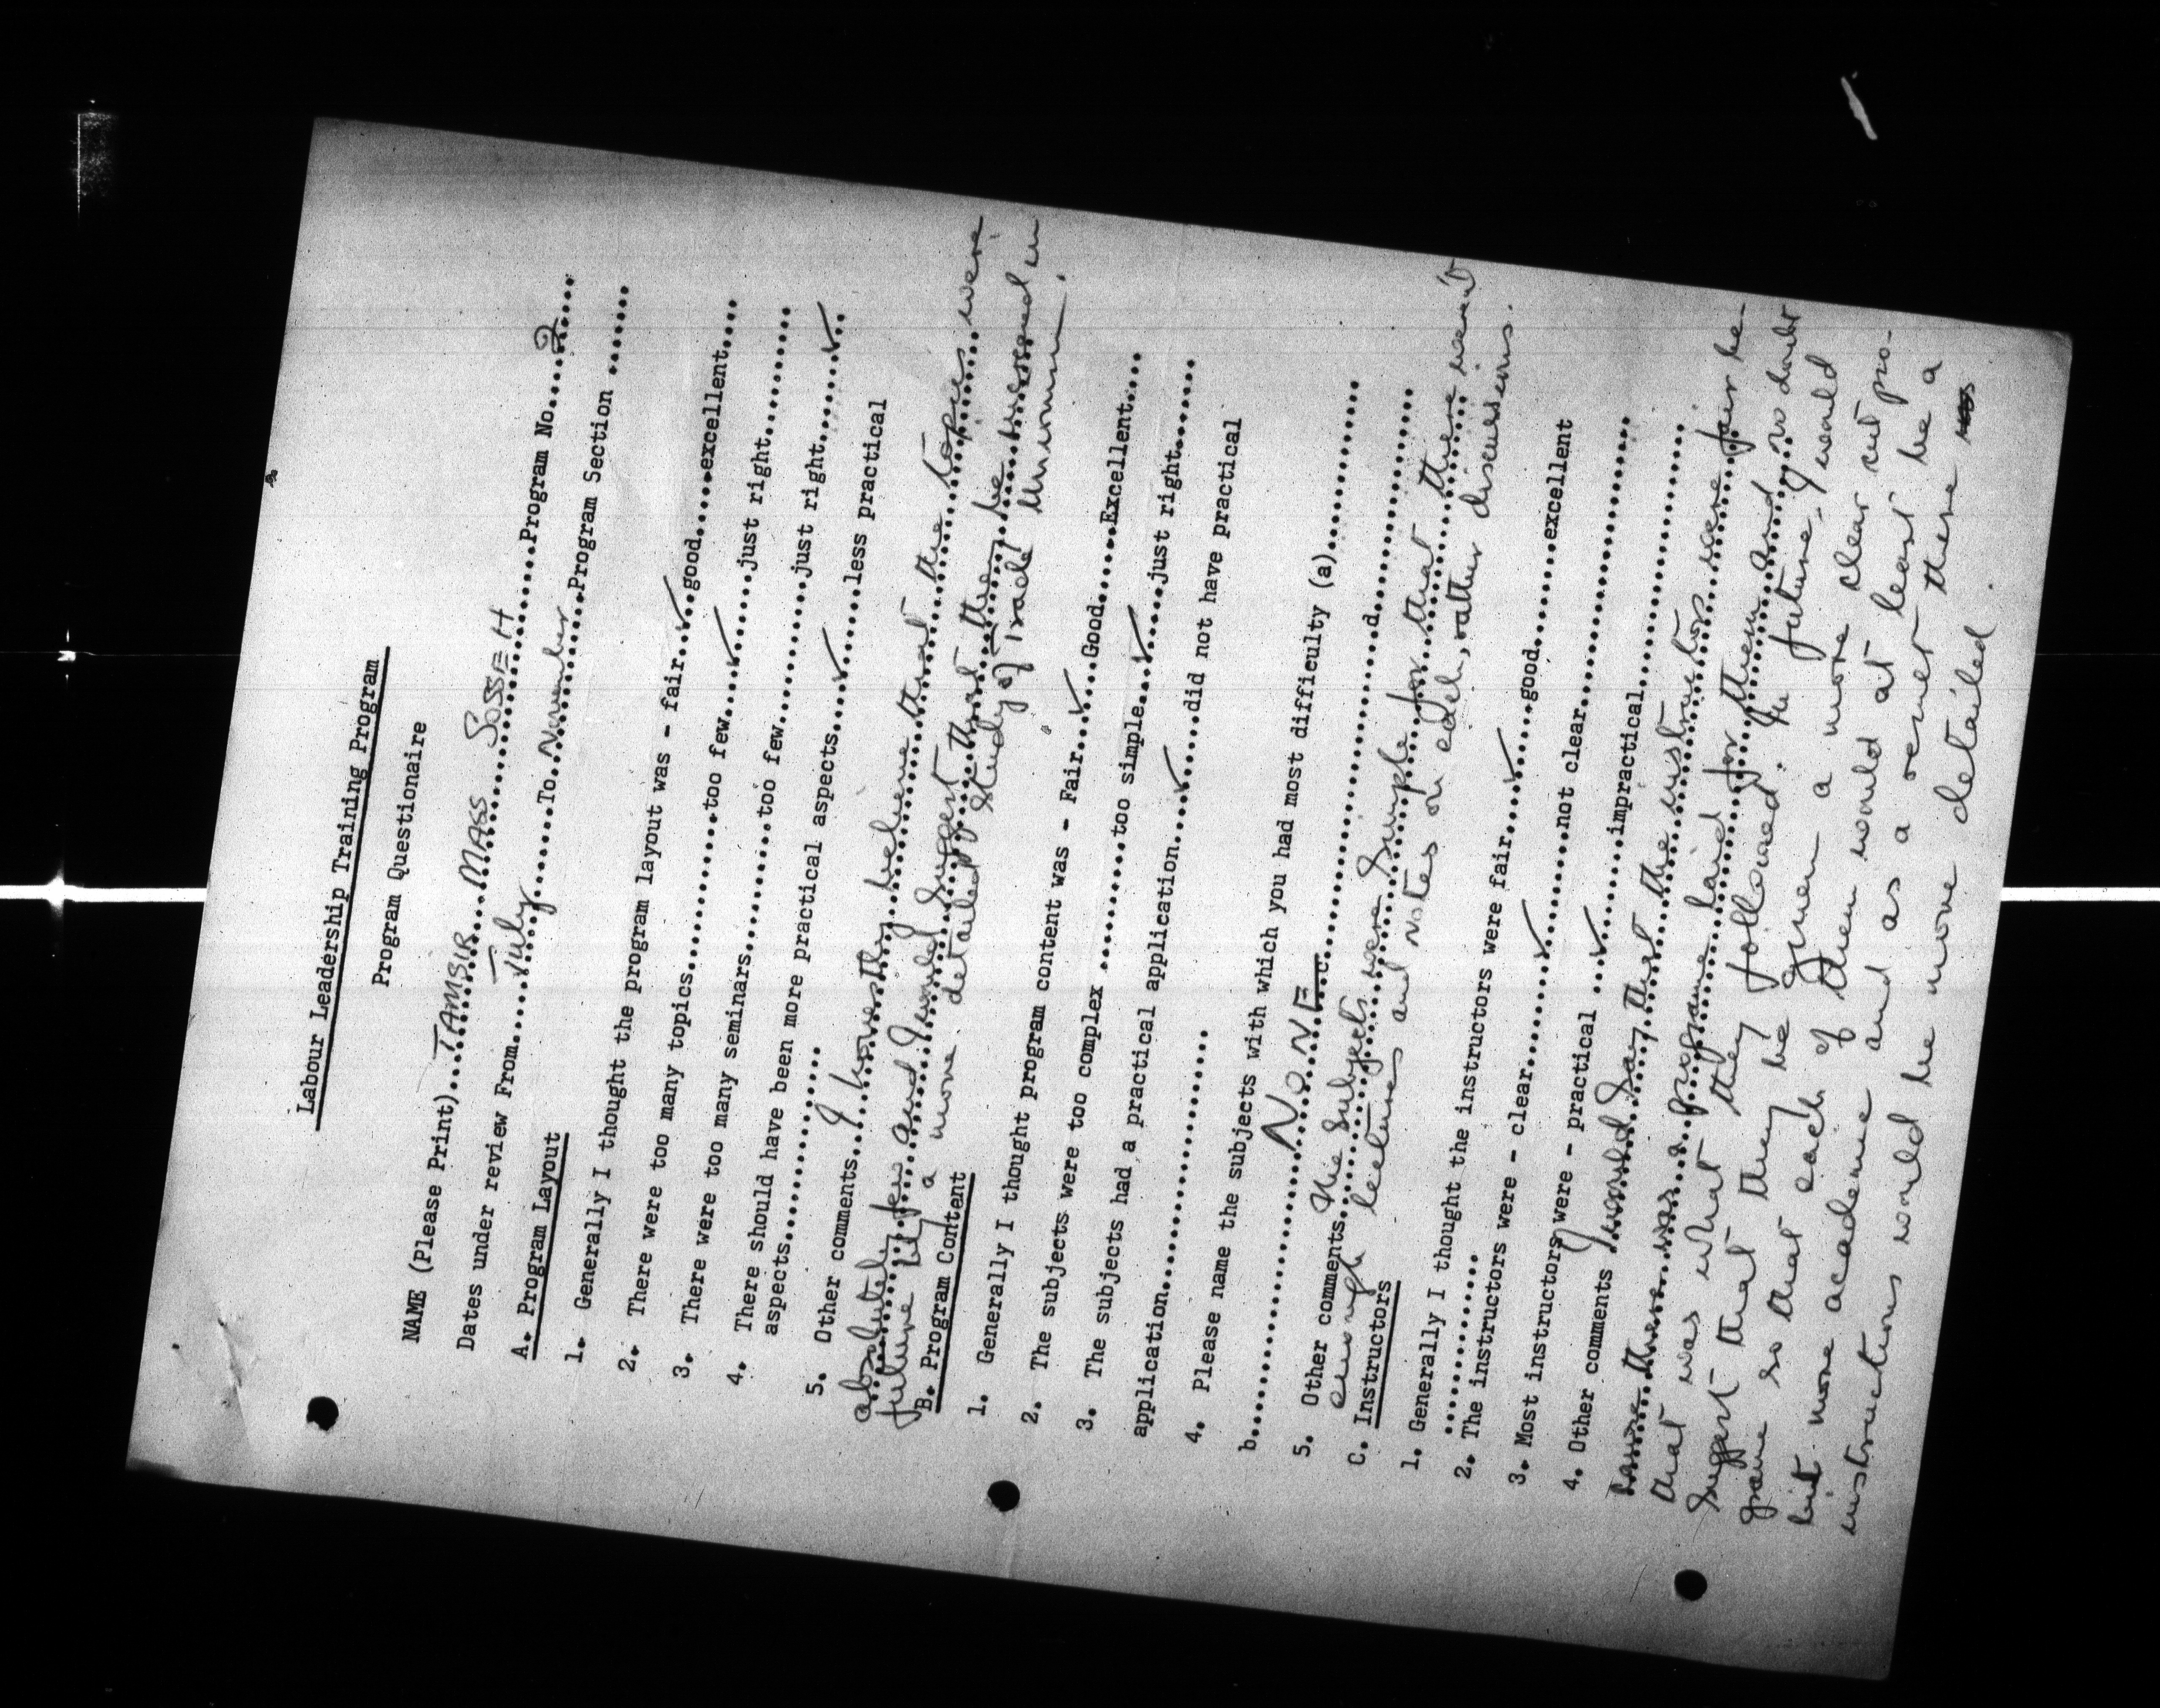 Labour Leadership Training Program
Program Questionaire
NAME (Please Print)....TAMSIR MASS SOSSEH......Program No....2....
Dates under review From......July......To..November...Program Section .......
A. Program Layout
1. Generally I thought the program layout was - fair..✓..good.....excellent....
2. There were too many topics............too few...✓....just right..........
3. There were too many seminars..........too few..........just right.......✓..
4. There should have been more practical aspects....✓....less practical
aspects..................
5. Other comments....I honestly believe that the topics were
absolutely few and I would suggest that they be increased in
future by a more detailed study of Trade Unionism.
B. Program Content
1. Generally I thought program content was - Fair..✓...Good.....Excellent....
2. The subjects were too complex ..........too simple...✓....just right.......
3. The subjects had a practical application....✓....did not have practical
application...................
4. Please name the subjects with which you had most difficulty (a)............
b...................NONE c........................d.................
5. Other comments. The subjects were simple for that there weren't
enough lectures and notes on each, rather discussions.
C. Instructors
1. Generally I thought the instructors were fair...✓...good.....excellent
.............
2. The instructors were - clear........✓.......not clear.................
3. Most instructors were - practical ...✓.....impractical.................
4. Other comments I would say that the instructors were fair be-
cause there was a programme laid for them and no doubt
that was what they followed. In future, I would
suggest that they be given a more clear cut pro-
gramme so that each of them would at least be a
bit more academic and as a result there
instructions would be more detailed.